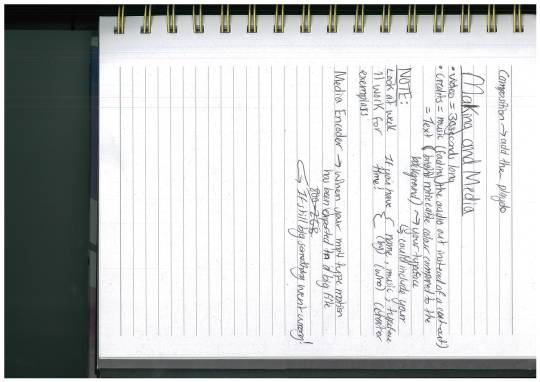 Composition → add the
Making and Media
• Video = 30 seconds long
• Credits = music (fading the audio out instead of a cut-out)
= Text (bright noticeable colour compared to the
background) → your typeface
NOTE:
Look at week
11 work for
exemplars
If you have
time!
could include your
{ name, music, typeface
(by) (who) (creator
Media Encoder → When your mp4 type motion
has been exported in a big file
→ If still big something went wrong!